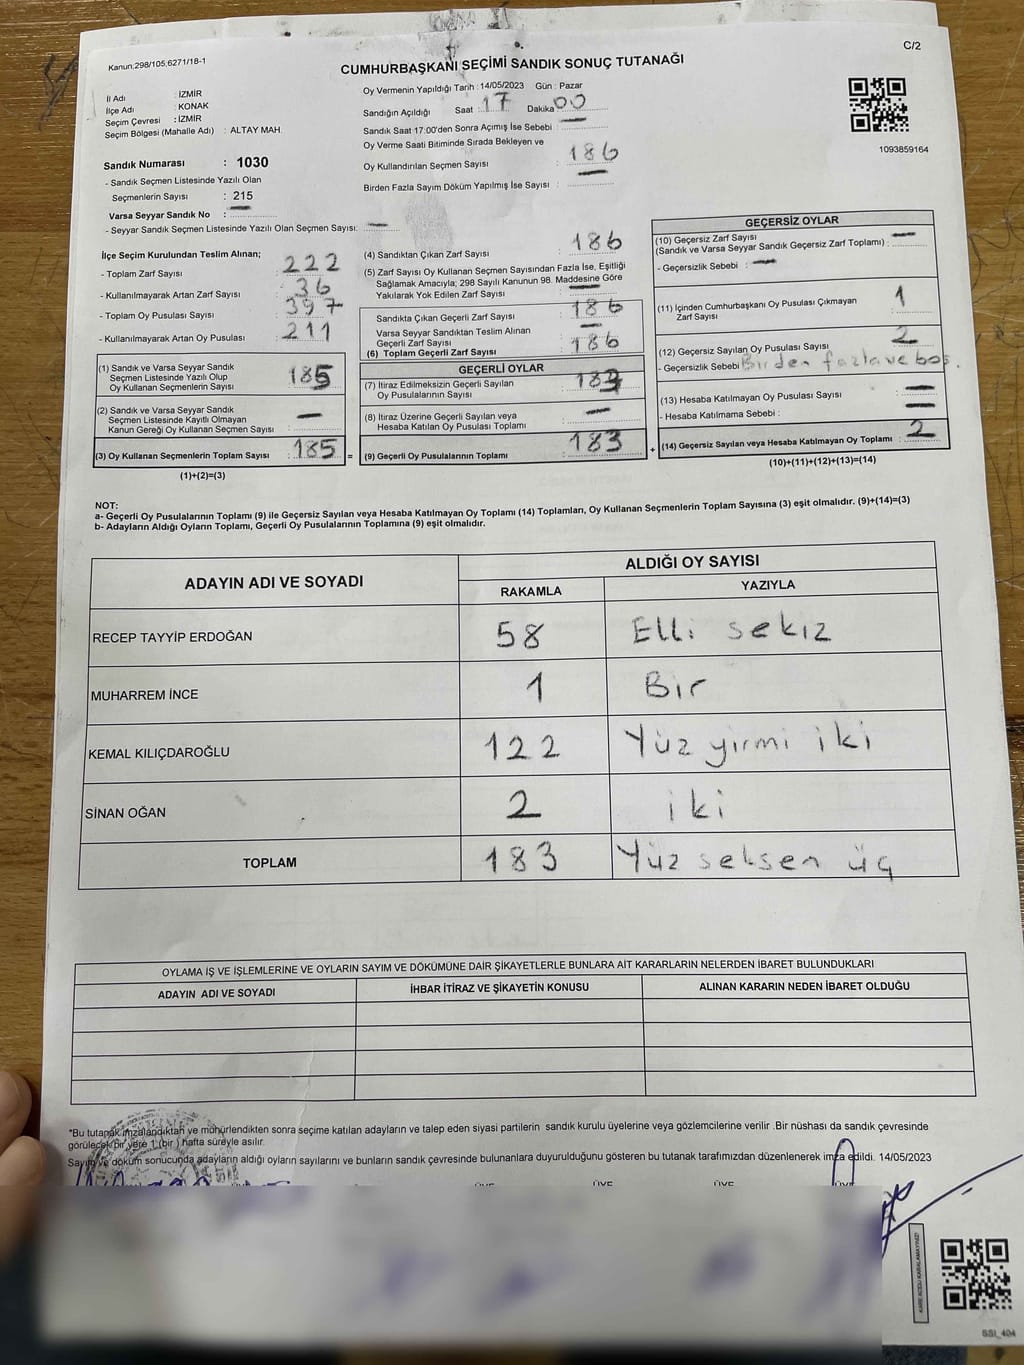 C/2
Kanun:298/105;6271/18-1
CUMHURBAŞKANI SEÇİMİ SANDIK SONUÇ TUTANAĞI
İl Adı : İZMİR
İlçe Adı : KONAK
Seçim Çevresi : İZMİR
Seçim Bölgesi (Mahalle Adı) : ALTAY MAH.
Sandık Numarası : 1030
- Sandık Seçmen Listesinde Yazılı Olan
Seçmenlerin Sayısı : 215
Varsa Seyyar Sandık No : —
- Seyyar Sandık Seçmen Listesinde Yazılı Olan Seçmen Sayısı: —
Oy Vermenin Yapıldığı Tarih : 14/05/2023 Gün : Pazar
Sandığın Açıldığı Saat : 17 Dakika 00
Sandık Saat 17:00'den Sonra Açımış İse Sebebi : —
Oy Verme Saati Bitiminde Sırada Bekleyen ve
Oy Kullandırılan Seçmen Sayısı : 186
Birden Fazla Sayım Döküm Yapılmış İse Sayısı : —
1093859164
İlçe Seçim Kurulundan Teslim Alınan;
- Toplam Zarf Sayısı : 222
- Kullanılmayarak Artan Zarf Sayısı : 36
- Toplam Oy Pusulası Sayısı : 397
- Kullanılmayarak Artan Oy Pusulası : 211
(1) Sandık ve Varsa Seyyar Sandık
Seçmen Listesinde Yazılı Olup
Oy Kullanan Seçmenlerin Sayısı : 185
(2) Sandık ve Varsa Seyyar Sandık
Seçmen Listesinde Kayıtlı Olmayan
Kanun Gereği Oy Kullanan Seçmen Sayısı : —
(3) Oy Kullanan Seçmenlerin Toplam Sayısı : 185 =
(1)+(2)=(3)
(4) Sandıktan Çıkan Zarf Sayısı : 186
(5) Zarf Sayısı Oy Kullanan Seçmen Sayısından Fazla İse, Eşitliği
Sağlamak Amacıyla; 298 Sayılı Kanunun 98. Maddesine Göre
Yakılarak Yok Edilen Zarf Sayısı : —
Sandıkta Çıkan Geçerli Zarf Sayısı : 186
Varsa Seyyar Sandıktan Teslim Alınan
Geçerli Zarf Sayısı : —
(6) Toplam Geçerli Zarf Sayısı : 186
GEÇERLİ OYLAR
(7) İtiraz Edilmeksizin Geçerli Sayılan
Oy Pusulasının Sayısı : 183
(8) İtiraz Üzerine Geçerli Sayılan veya
Hesaba Katılan Oy Pusulası Toplamı : —
(9) Geçerli Oy Pusulalarının Toplamı : 183 +
GEÇERSİZ OYLAR
(10) Geçersiz Zarf Sayısı
(Sandık ve Varsa Seyyar Sandık Geçersiz Zarf Toplamı) : —
- Geçersizlik Sebebi : —
(11) İçinden Cumhurbaşkanı Oy Pusulası Çıkmayan
Zarf Sayısı : 1
(12) Geçersiz Sayılan Oy Pusulası Sayısı : 2
- Geçersizlik Sebebi : Birden fazla ve boş.
(13) Hesaba Katılmayan Oy Pusulası Sayısı : —
- Hesaba Katılmama Sebebi : —
(14) Geçersiz Sayılan veya Hesaba Katılmayan Oy Toplamı : 2
(10)+(11)+(12)+(13)=(14)
NOT:
a- Geçerli Oy Pusulalarının Toplamı (9) ile Geçersiz Sayılan veya Hesaba Katılmayan Oy Toplamı (14) Toplamları, Oy Kullanan Seçmenlerin Toplam Sayısına (3) eşit olmalıdır. (9)+(14)=(3)
b- Adayların Aldığı Oyların Toplamı, Geçerli Oy Pusulalarının Toplamına (9) eşit olmalıdır.
ADAYIN ADI VE SOYADI ALDIĞI OY SAYISI
RAKAMLA YAZIYLA
RECEP TAYYİP ERDOĞAN 58 Elli sekiz
MUHARREM İNCE 1 Bir
KEMAL KILIÇDAROĞLU 122 Yüz yirmi iki
SİNAN OĞAN 2 iki
TOPLAM 183 Yüz seksen üç
OYLAMA İŞ VE İŞLEMLERİNE VE OYLARIN SAYIM VE DÖKÜMÜNE DAİR ŞİKAYETLERLE BUNLARA AİT KARARLARIN NELERDEN İBARET BULUNDUKLARI
ADAYIN ADI VE SOYADI İHBAR İTİRAZ VE ŞİKAYETİN KONUSU ALINAN KARARIN NEDEN İBARET OLDUĞU
*Bu tutanak imzalandıktan ve mühürlendikten sonra seçime katılan adayların ve talep eden siyasi partilerin sandık kurulu üyelerine veya gözlemcilerine verilir .Bir nüshası da sandık çevresinde
görülecek bir yere 1 (bir ) hafta süreyle asılır.
Sayım ve döküm sonucunda adayların aldığı oyların sayılarını ve bunların sandık çevresinde bulunanlara duyurulduğunu gösteren bu tutanak tarafımızdan düzenlenerek imza edildi. 14/05/2023
ÜYE ÜYE ÜYE ÜYE
KARE KODU KARALAMAYINIZ!
SSI_404